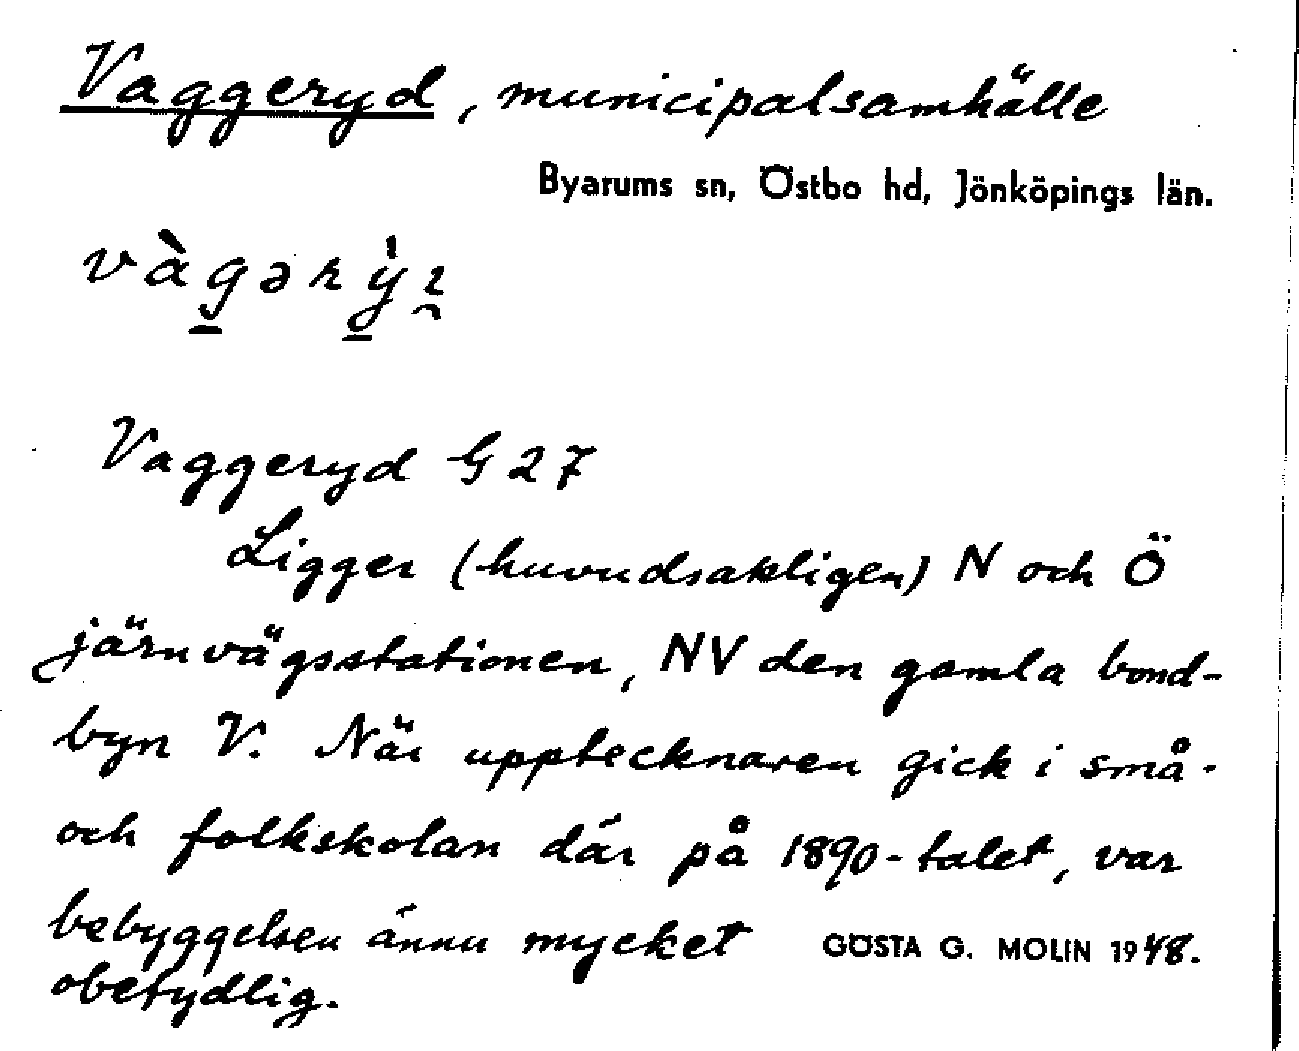 Vaggeryd, municipalsamhälle
Byarums sn, Östbo hd, Jönköpings län.
Vaggeryd G 27
Ligger (huvudsakligen) N och Ö
järnvägsstationen, NV den gamla bond-
byn V. När upptecknaren gick i små-
och folkskolan där på 1890-talet, var
bebyggelsen ännu mycket
GÖSTA G. MOLIN 1948.
obetydlig.